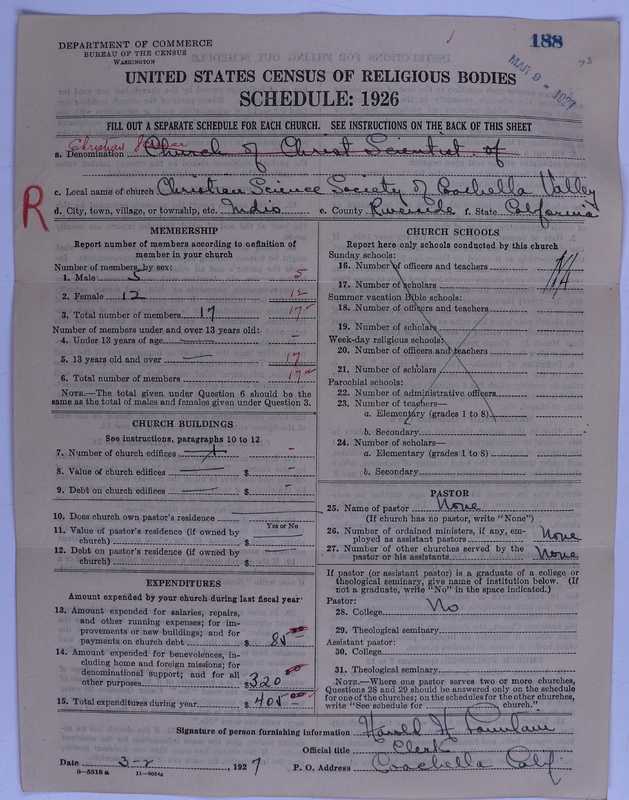 188
MAR 9 - 1927
DEPARTMENT OF COMMERCE
BUREAU OF THE CENSUS
WASHINGTON
UNITED STATES CENSUS OF RELIGIOUS BODIES
SCHEDULE: 1926
FILL OUT A SEPARATE SCHEDULE FOR EACH CHURCH. SEE INSTRUCTIONS ON THE BACK OF THIS SHEET
a. Denomination Christian Church of Christ Scientist of
c. Local name of church Christian Science Society of Coachella Valley
R
d. City, town, village, or township, etc. Indio e. County Riverside f. State California
MEMBERSHIP
Report number of members according to definition of
member in your church
Number of members, by sex:
1. Male 5 5
2. Female 12 12
3. Total number of members 17 17
Number of members under and over 13 years old:
4. Under 13 years of age — -
5. 13 years old and over — 17
6. Total number of members 17
NOTE.—The total given under Question 6 should be the
same as the total of males and females given under Question 3.
CHURCH BUILDINGS
See instructions, paragraphs 10 to 12
7. Number of church edifices -
8. Value of church edifices — $ -
9. Debt on church edifices — $ -
10. Does church own pastor's residence
Yes or No
11. Value of pastor's residence (if owned by
church) $
12. Debt on pastor's residence (if owned by
church) $
EXPENDITURES
Amount expended by your church during last fiscal year
13. Amount expended for salaries, repairs,
and other running expenses; for im-
provements or new buildings; and for
payments on church debt $ 85 00
14. Amount expended for benevolences, in-
cluding home and foreign missions; for
denominational support; and for all
other purposes $ 320 00
15. Total expenditures during year $ 405 00
CHURCH SCHOOLS
Report here only schools conducted by this church
Sunday schools:
16. Number of officers and teachers
17. Number of scholars
Summer vacation Bible schools:
18. Number of officers and teachers
19. Number of scholars
Week-day religious schools:
20. Number of officers and teachers
21. Number of scholars
Parochial schools:
22. Number of administrative officers
23. Number of teachers—
a. Elementary (grades 1 to 8)
b. Secondary
24. Number of scholars—
a. Elementary (grades 1 to 8)
b. Secondary
PASTOR
25. Name of pastor None
(If church has no pastor, write "None")
26. Number of ordained ministers, if any, em-
ployed as assistant pastors None
27. Number of other churches served by the
pastor or his assistants None
If pastor (or assistant pastor) is a graduate of a college or
theological seminary, give name of institution below. (If
not a graduate, write "No" in the space indicated.)
Pastor:
28. College No
29. Theological seminary
Assistant pastor:
30. College
31. Theological seminary
NOTE.—Where one pastor serves two or more churches,
Questions 28 and 29 should be answered only on the schedule
for one of the churches; on the schedules for the other churches,
write "See schedule for church."
Signature of person furnishing information Harold H.
Official title Clerk
Date 3-2, 1927 P. O. Address Coachella Calif.
8-5518 a 11-9084